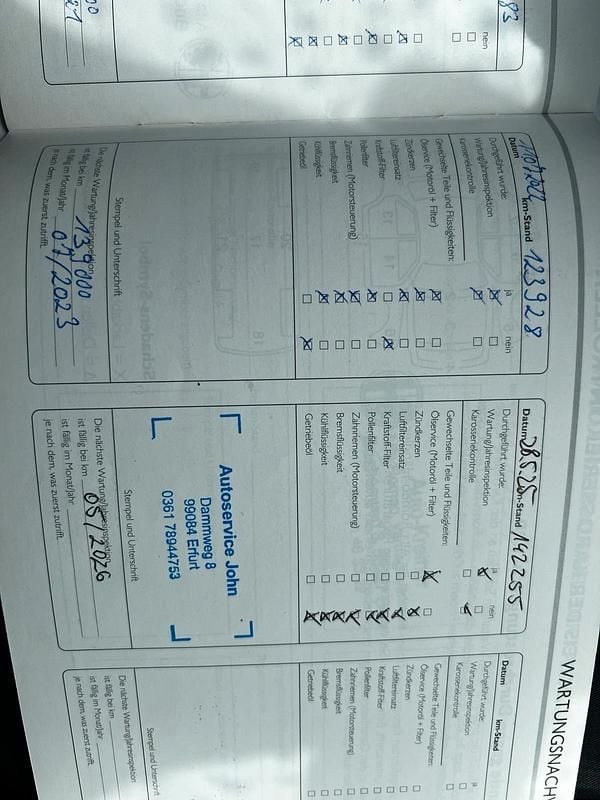 WARTUNGSNACHW
nein
83
00
21
Datum 11.07.2022 km-Stand 123928
Durchgeführt wurde: ja nein
Wartung/Jahresinspektion
Karosseriekontrolle
Gewechselte Teile und Flüssigkeiten:
Ölservice (Motoröl + Filter)
Zündkerzen
Luftfiltereinsatz
Kraftstoff-Filter
Pollenfilter
Zahnriemen (Motorsteuerung)
Bremsflüssigkeit
Kühlflüssigkeit
Getriebeöl
Stempel und Unterschrift
Die nächste Wartung/Jahresinspektion
ist fällig bei km 139000
ist fällig im Monat/Jahr 07/2023
je nach dem, was zuerst zutrifft.
Datum 28.5.25 km-Stand 142255
Durchgeführt wurde: ja nein
Wartung/Jahresinspektion
Karosseriekontrolle
Gewechselte Teile und Flüssigkeiten:
Ölservice (Motoröl + Filter)
Zündkerzen
Luftfiltereinsatz
Kraftstoff-Filter
Pollenfilter
Zahnriemen (Motorsteuerung)
Bremsflüssigkeit
Kühlflüssigkeit
Getriebeöl
Autoservice John
Dammweg 8
99084 Erfurt
0361 78944753
Stempel und Unterschrift
Die nächste Wartung/Jahresinspektion
ist fällig bei km
ist fällig im Monat/Jahr 05/2026
je nach dem, was zuerst zutrifft.
Datum km-Stand
Durchgeführt wurde: ja
Wartung/Jahresinspektion
Karosseriekontrolle
Gewechselte Teile und Flüssigkeiten:
Ölservice (Motoröl + Filter)
Zündkerzen
Luftfiltereinsatz
Kraftstoff-Filter
Pollenfilter
Zahnriemen (Motorsteuerung)
Bremsflüssigkeit
Kühlflüssigkeit
Getriebeöl
Stempel und Unterschrift
Die nächste Wartung/Jahresinspektion
ist fällig bei km
ist fällig im Monat/Jahr
je nach dem, was zuerst zutrifft.